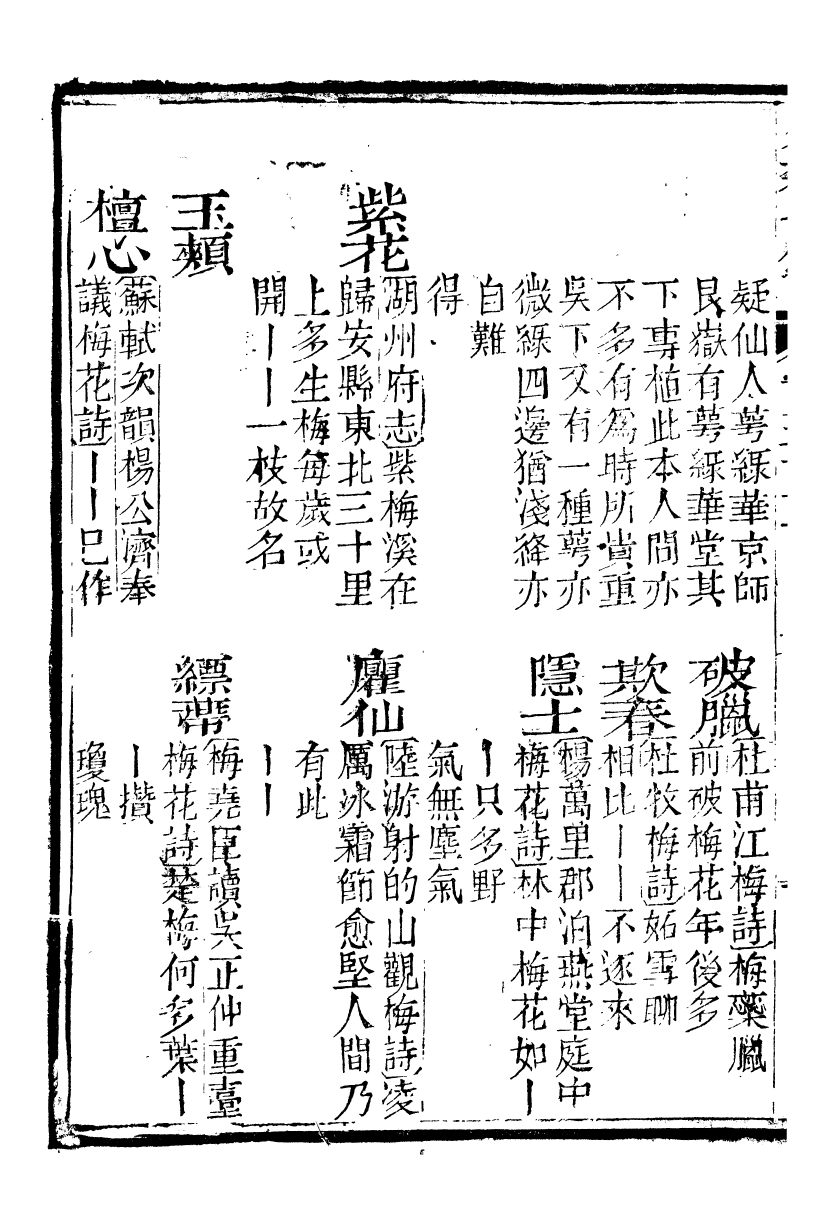 疑仙人萼綠華京師
艮嶽有萼綠華堂其
下專植此本人間亦
不多有爲時所貴重
吳下又有一種萼亦
微綠四邊猶淺絳亦
自難
得
紫花
湖州府志紫梅溪在
歸安縣東北三十里
上多生梅每歲或
開丨丨一枝故名
玉頰
檀心
蘇軾次韻楊公濟奉
議梅花詩丨丨已作
破臘
杜甫江梅詩梅蘂臘
前破梅花年後多
欺春
杜牧梅詩妬雪聊
相比丨丨不逐來
隱士
楊萬里郡泊燕堂庭中
梅花詩林中梅花如丨
丨只多野
氣無塵氣
臞仙
陸游射的山觀梅詩凌
厲冰霜節愈堅人間乃
有此
丨丨
縹帶
梅堯臣讀吳正仲重臺
梅花詩楚梅何多葉丨
丨攢
瓊瑰